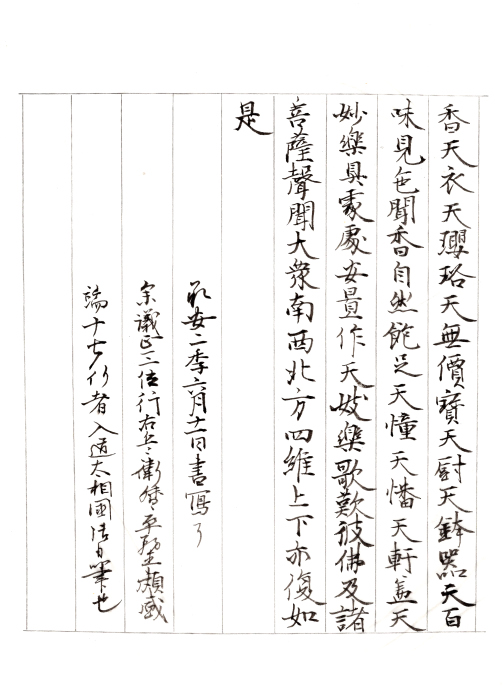 香天衣天瓔珞天無價寶天厨天鉢器天百
味見色聞香自然飽足天幢天幡天軒盖天
妙樂具處處安置作天妓樂歌歎彼佛及諸
菩薩聲聞大衆南西北方四維上下亦復如
是
安二季六月十一日書寫了
議正三位行右兵衛督平朝頼盛
端十七行者入道太相國清自筆也